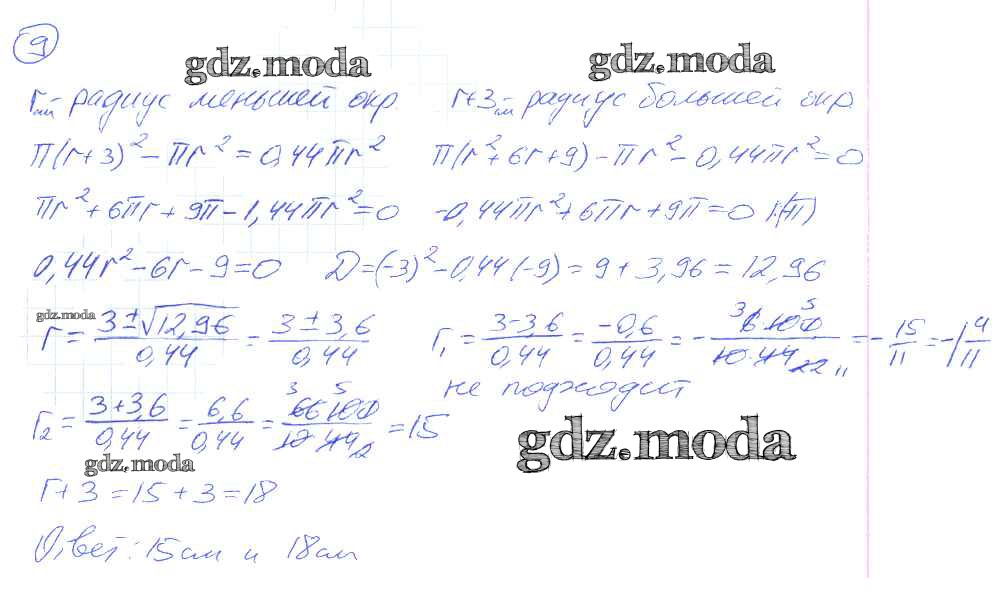 9
gdz.moda gdz.moda
r см - радиус меньшей окр. r+3 см - радиус большей окр.
π(r+3)² - πr² = 0,44πr² π(r²+6r+9) - πr² - 0,44πr² = 0
πr² + 6πr + 9π - 1,44πr² = 0 -0,44πr² + 6πr + 9π = 0 |:(-π)
0,44r² - 6r - 9 = 0 D = (-3)² - 0,44(-9) = 9 + 3,96 = 12,96
gdz.moda
r = (3 ± √12,96)/0,44 = (3 ± 3,6)/0,44 r₁ = (3 - 3,6)/0,44 = -0,6/0,44 = - (6·100)/(10·44) = - 15/11 = -1 4/11
не подходит
r₂ = (3 + 3,6)/0,44 = 6,6/0,44 = (66·100)/(10·44) = 15
gdz.moda
gdz.moda
r + 3 = 15 + 3 = 18
Ответ: 15 см и 18 см